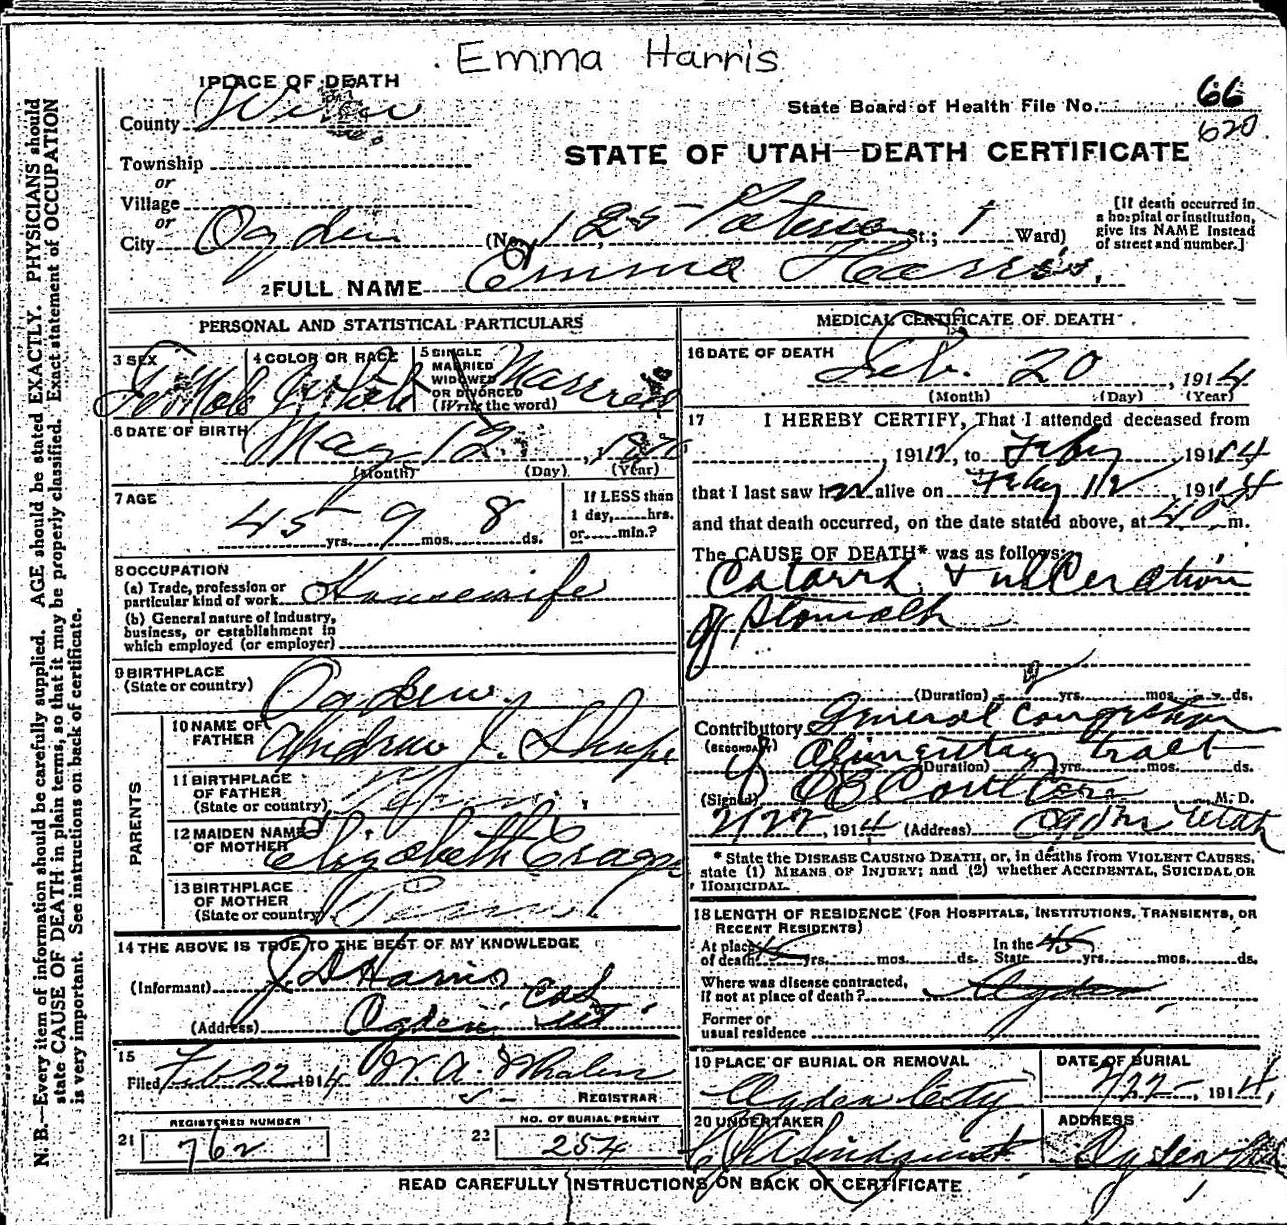 Emma Harris
1 PLACE OF DEATH
State Board of Health File No. 66
620
County
STATE OF UTAH—DEATH CERTIFICATE
Township
or
Village
or
City Ogden (No. 125 St.; 1 Ward)
[If death occurred in
a hospital or institution,
give its NAME instead
of street and number.]
2 FULL NAME Emma Harris
PERSONAL AND STATISTICAL PARTICULARS
3 SEX Female
4 COLOR OR RACE White
5 SINGLE
MARRIED
WIDOWED
OR DIVORCED
(Write the word) Married
6 DATE OF BIRTH May 12
(Month) (Day) (Year)
7 AGE
45 yrs. 9 mos. 8 ds.
If LESS than
1 day, hrs.
or min.?
8 OCCUPATION
(a) Trade, profession or
particular kind of work Housewife
(b) General nature of Industry,
business, or establishment in
which employed (or employer)
9 BIRTHPLACE
(State or country) Ogden
PARENTS
10 NAME OF
FATHER Andrew J. Shupe
11 BIRTHPLACE
OF FATHER
(State or country)
12 MAIDEN NAME
OF MOTHER Elizabeth
13 BIRTHPLACE
OF MOTHER
(State or country)
14 THE ABOVE IS TRUE TO THE BEST OF MY KNOWLEDGE
(Informant) J. D. Harris
(Address) Ogden
15
Filed Feb 22 1914 W. A. Whalen
REGISTRAR
REGISTERED NUMBER
21 762
NO. OF BURIAL PERMIT
22 254
MEDICAL CERTIFICATE OF DEATH
16 DATE OF DEATH
Feb. 20, 1914
(Month) (Day) (Year)
17 I HEREBY CERTIFY, That I attended deceased from
, 1912, to Feby 1914
that I last saw her alive on Feby 1914
and that death occurred, on the date stated above, at m.
The CAUSE OF DEATH* was as follows:
Catarrh & ulceration
of Stomach
(Duration) 2 yrs. mos. ds.
Contributory General Congestion
(SECONDARY) of Alimentary tract
(Duration) yrs. mos. ds.
(Signed) M. D.
2/22, 1914 (Address) Ogden Utah
* State the DISEASE CAUSING DEATH, or, in deaths from VIOLENT CAUSES,
state (1) MEANS OF INJURY; and (2) whether ACCIDENTAL, SUICIDAL OR
HOMICIDAL.
18 LENGTH OF RESIDENCE (FOR HOSPITALS, INSTITUTIONS, TRANSIENTS, OR
RECENT RESIDENTS)
At place
of death yrs. mos. ds.
In the
State 45 yrs. mos. ds.
Where was disease contracted,
if not at place of death? Ogden
Former or
usual residence
19 PLACE OF BURIAL OR REMOVAL
Ogden City
DATE OF BURIAL
2/22, 1914
20 UNDERTAKER
Lindquist
ADDRESS
Ogden
READ CAREFULLY INSTRUCTIONS ON BACK OF CERTIFICATE
N. B.—Every item of information should be carefully supplied. AGE should be stated EXACTLY. PHYSICIANS should
state CAUSE OF DEATH in plain terms, so that it may be properly classified. Exact statement of OCCUPATION
is very important. See instructions on back of certificate.